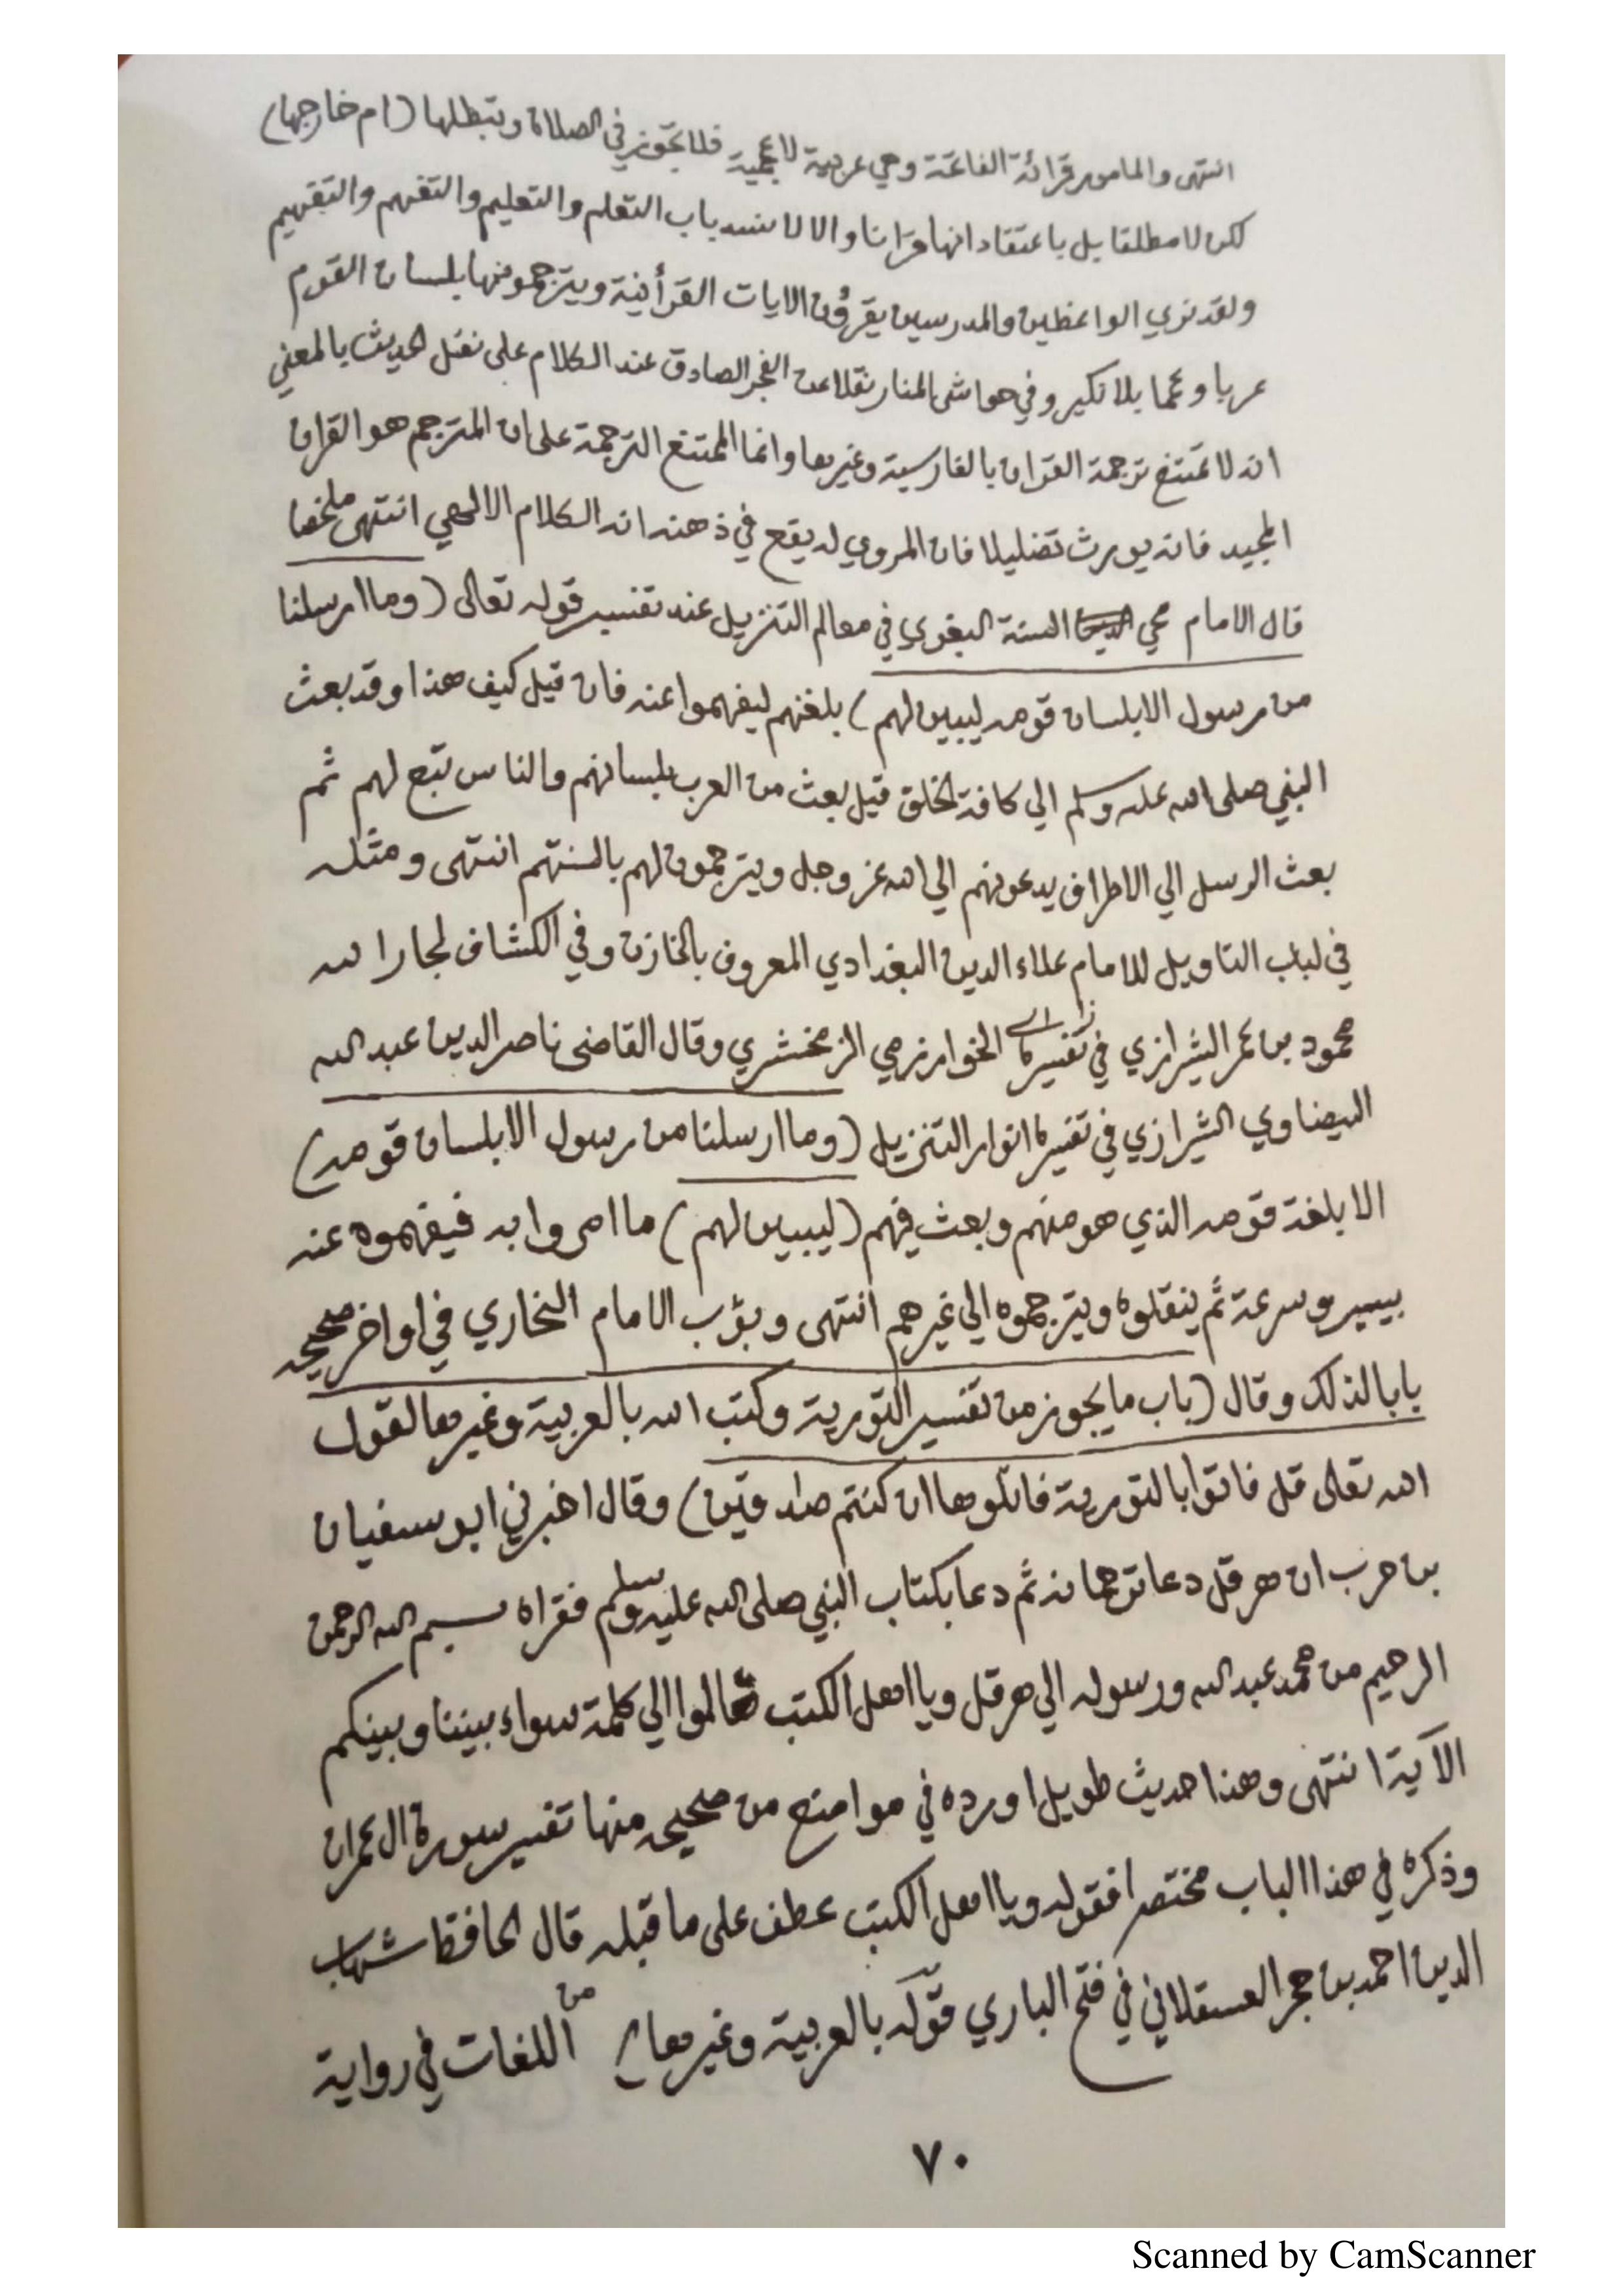 انتهى والمامور قرائة الفاتحة وهي عربية لاعجمية فلا تجوز في الصلاة وتبطلها (ام خارجها)
لكن لا مطلقا بل باعتقاد انها قرانا والا لانسد باب التعلم والتعليم والتفهم والتفهيم
ولقد نري الواعظين والمدرسين يقرؤن الايات القرأنية ويترجمونها بلسان القوم
عربا وعجما بلا نكير وفي حواشى المنار نقلا عن الفجر الصادق عند الكلام على نقل الحديث بالمعني
انه لا تمتنع ترجمة القران بالفارسية وغيرها وانما الممتنع الترجمة على ان المترجم هو القران
المجيد فانه يورث تضليلا فان المروي له يقع في ذهنه انه الكلام الالهي انتهى ملخصا
قال الامام محي السنة البغوي في معالم التنزيل عند تفسير قوله تعالى (وما ارسلنا
من رسول الا بلسان قومه ليبين لهم) بلغتهم ليفهموا عنه فان قيل كيف هذا وقد بعث
النبي صلى الله عليه وسلم الي كافة الخلق قيل بعث من العرب بلسانهم والناس تبع لهم ثم
بعث الرسل الي الاطراف يدعونهم الي الله عز وجل ويترجمون لهم بالسنتهم انتهى ومثله
في لباب التاويل للامام علاء الدين البغدادي المعروف بالخازن وفي الكشاف لجار الله
محمود بن عمر الشيرازي في تفسيره الخوارزمي الزمخشري وقال القاضى ناصر الدين عبد الله
البيضاوي الشيرازي في تفسيره انوار التنزيل (وما ارسلنا من رسول الا بلسان قومه)
الا بلغة قومه الذي هو منهم وبعث فيهم (ليبين لهم) ما امروا به فيفهموه عنه
بيسر وسرعة ثم ينقلوه ويترجموه الي غيرهم انتهى وبوّب الامام البخاري في اواخر صحيحه
بابا لذلك وقال (باب ما يجوز من تفسير التورية وكتب الله بالعربية وغيرها لقول
الله تعالى قل فاتوا بالتورية فاتلوها ان كنتم صادقين) وقال اخبرني ابو سفيان
بن حرب ان هرقل دعا ترجمانه ثم دعا بكتاب النبي صلى الله عليه وسلم فقراه بسم الله الرحمن
الرحيم من محمد عبد الله ورسوله الي هرقل ويا اهل الكتب تعالوا الي كلمة سواء بيننا وبينكم
الآية انتهى وهذا حديث طويل اورده في مواضع من صحيحه منها تفسير سورة ال عمران
وذكره في هذا الباب مختصرا فقوله ويا اهل الكتب عطف على ما قبله قال الحافظ شهاب
الدين احمد بن حجر العسقلاني في فتح الباري قوله بالعربية وغيرها من اللغات في رواية
٧٠
Scanned by CamScanner